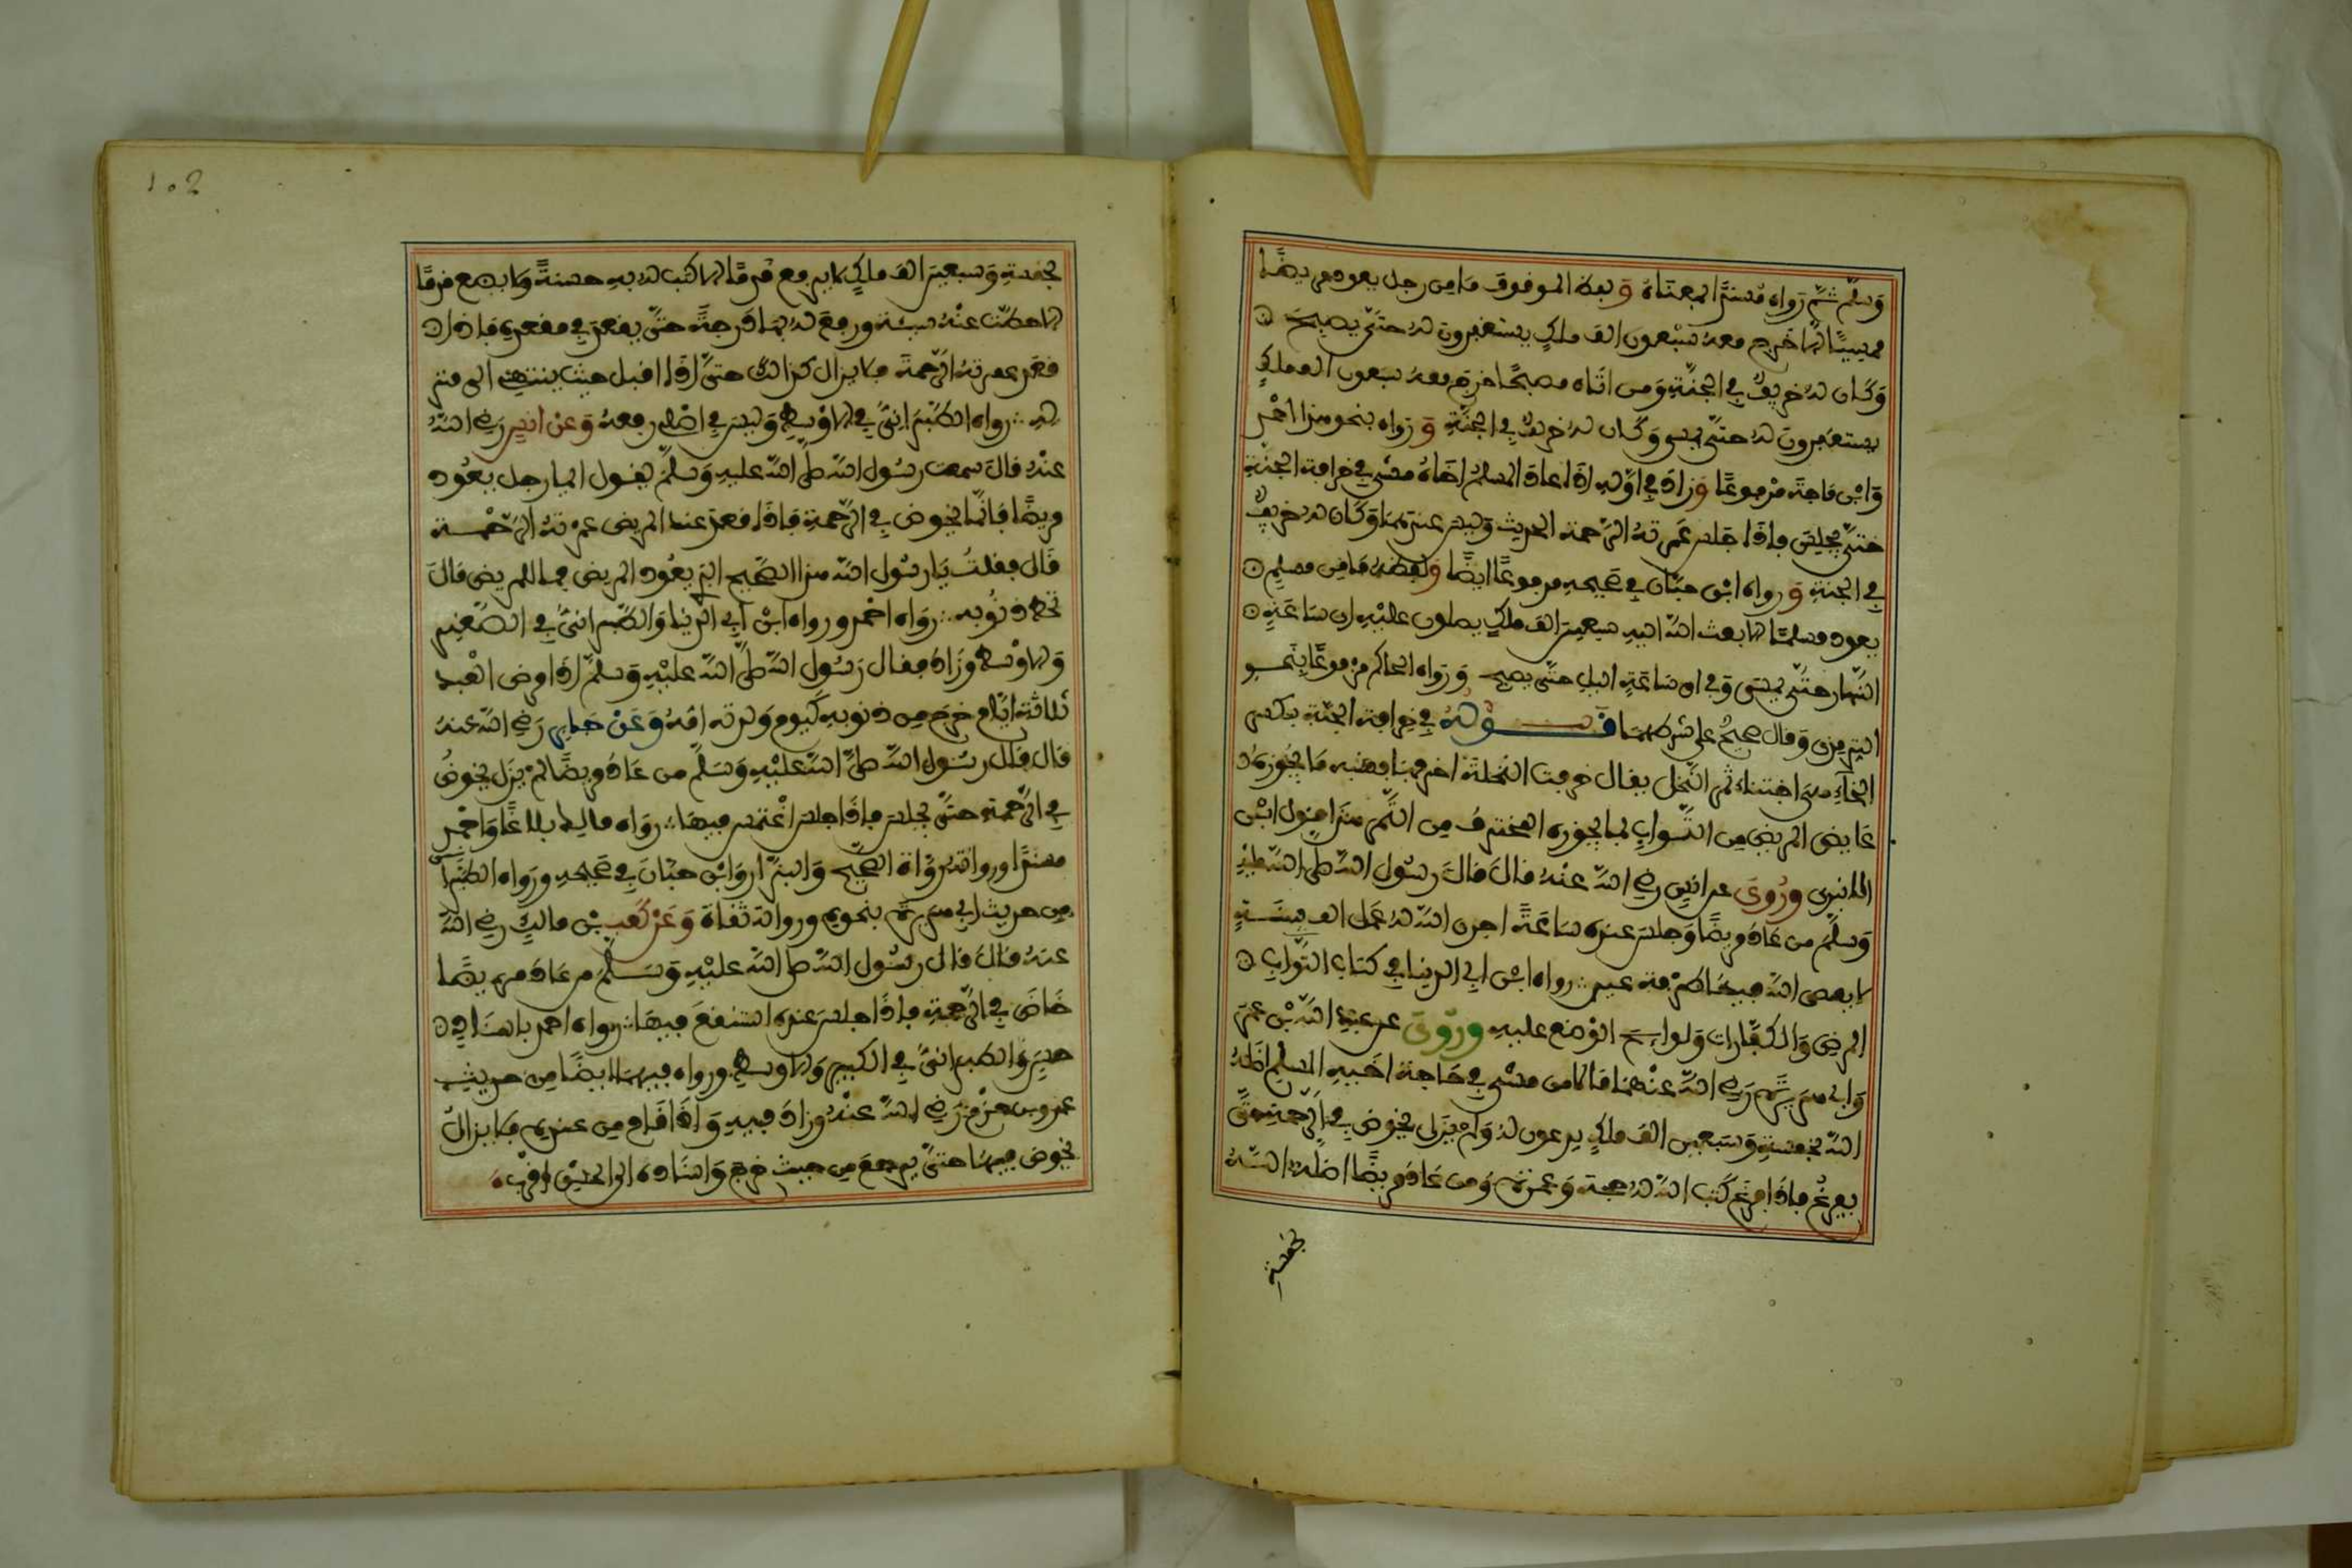 وَسلّم ثمّ رواه مُسنَدًا بمعناهُ وَلفظ الموقوف مَا مِن رجل يعود مريضًا
ممسيًا الاّ خرج معهُ سَبْعون الف ملكٍ يستغفرون لهُ حتىّ يصبحَ
وَكَان لهُ خريفٌ في الجنّةِ وَمن اتَاه مصبحًا خرَج معهُ سَبعون الف ملكٍ
يستغفِرون لهُ حتىّ يمسي وَكَان لهُ خريفٌ في الجنّةِ وَرَواه بنحو هذا احمد
وَابْن مَاجَة مَرْفوعًا وَزادَ في اوّلهِ اذَا عادَ المسلمُ اخَاهُ مشى في خرافة الجنّةِ
حتىّ يجلِسَ فإذَا جَلس غَمرتهُ الرّحمة الحديث وَليس عندهمَا وَكَان لهُ خريفٌ
في الجنةِ وَرواه ابْن حبّان في صَحيحهِ مرفوعًا ايضًا وَلفظهُ مَا مِن مسلمٍ
يعود مسلمًا الاّ بعث اللّه اليهِ سبعين الف ملكٍ يصلون عليْهِ اي سَاعَةٍ
النّهار حتىّ يمسَي وَفي اي سَاعَةٍ اليلِ حتىّ يصبح وَرَواه الحاكم مَرْفوعًا بنَحوِ
الترمِذي وَقال صحيحٌ على شرطهمَا قَوْلهُ في خِرافة الجنّةِ بكسر
الخَاءِ اي اجْتناء ثمر النّخل يقال خرفت النخلةَ اخرفهَا فشبه مَا يحُوزهُ
عَايض المريض مِن الثّوابِ بما يحوزه المخترفُ مِن الثّمر هذَا قول ابْن
الانبَري وَرُوىَ عن انسٍ رضي اللّه عنْهُ قالَ قالَ رسُول اللّه صلى اللّه عليْهِ
وَسلّمَ من عَادَ مريضًا وَجلسَ عندَه سَاعَةً اجرى اللّه لهُ عمل الف سنَةٍ
لا يعصى اللّه فيهَا طرْفة عينٍ رواه ابْن ابي الدنيا في كتاب الثّوابِ
المرض وَالكفّارات وَلوايح الوَضع عليهِ وَرُوىَ عن عبدِ اللّه بْن عمرَ
وَابي هرَيْرَة رَضي اللّه عنْهمَا قَالا من مشى في حَاجة اخيهِ المسْلم اظلّهُ
اللّه بخمسةٍ وَسَبعين الف ملكٍ يدعون لهُ وَلم يَزل يخوض في الرّحمة حتىّ
يفرغُ فإذَا فرَغ كَتبَ اللّه لهُ حجة وَعمرَة وَمن عَادَ مريضًا اظلّهُ اللّهُ
بخمسَةِ
1.2
بخمسةٍ وَسبعين الف ملكٍ لا يرفع قدمًا الا كتب لهُ بهِ حسنةً وَلا يضع قدمًا
الا حطّت عنْهُ سيئة ورفعَ لهُ بهَا دَرجةً حتىّ يقعدَ في مقعدهِ فإذا
قعَد غمرتهُ الرّحمةَ فلا يزال كذالكَ حتىّ اذَا اقبل حيث ينتهي الى منز
لهِ رواه الطّبرَانيّ في الاوْسط وَليسَ في اصْلي رفعهُ وَعَنْ انسٍ رضي اللّهُ
عنْهُ قالَ سمعت رسُول اللّه صلىّ اللّه عليهِ وَسلّمَ يقول ايما رجل يعُود
مريضًا فإنمّا يخوض في الرّحمةِ فإذَا قعدَ عند المريض غمَرتهُ الرّحْمة
قالَ فقلتُ يَا رسُول اللّه هذا الصّحيح الذي يعُود المريض فما للمريض قالَ
تحط ذنُوبه رَوَاه احمد ورواه ابْن ابي الدنيا وَالطّبرانىّ في الصّغير
وَالاوْسط وزَادَ فقال رَسُول اللّه صلىّ اللّه عليْهِ وَسلّمَ اذَا مرض العبد
ثلاثة ايّام خرَج مِن ذنوبهِ كيوم وَلدته امّهُ وَعَنْ جَابرٍ رَضي اللّه عنهُ
قال قال رسُول اللّه صلىّ اللّه عليْهِ وَسَلّمَ من عَادَ مريضًا لمْ يزَل يخوضُ
في الرّحمةِ حتىّ يجلسَ فإذَا جلس اغْتمسَ فيهَا رَوَاه مَالِك بلاغًا وَاحمد
مسندًا ورواتهُ رُوَاة الصّحيح وَالبزّار وَابْن حبّانَ في صَحيحهِ ورَوَاه الطّبرَا
مِن حديث ابي هرَيْرَة بنحوهِ ورواته ثقاة وَعَنْ كَعبِ بْن مالكٍ رضي اللّه
عنهُ قالَ قال رسُول اللّه صلى اللّه عليْهِ وَسَلّمَ من عادَ مريضًا
خَاضَ في الرّحمةِ فإذَا جلسَ عندَه استنقعَ فيهَا رواه احمد باسنَادٍ
حسَنٍ وَالطبرَانىّ في الكبير وَالاوسط ورواه فيهمَا ايضًا مِن حديثِ
عمرو بن حزْمٍ رَضي اللّه عنْهُ وزادَ فيهِ وَاذَا قَام مِن عندهِ فلا يزالُ
يخوض فيهَا حتىّ يرجعَ مِن حيث خرَج وَاسنَاده الى الحسْن اقْرب